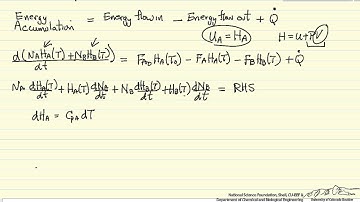 Energy Accumulation = Energy flow in − Energy flow out + Q̇
U_A = H_A H = U + PV
d(N_A H_A(T) + N_B H_B(T))/dt = F_A0 H_A(T_0) − F_A H_A(T) − F_B H_B(T) + Q̇
N_A dH_A(T)/dt + H_A(T) dN_A/dt + N_B dH_B(T)/dt + H_B(T) dN_B/dt = RHS
dH_A = C_PA dT
National Science Foundation, Shell, CU-EEF
Department of Chemical and Biological Engineering University of Colorado Boulder